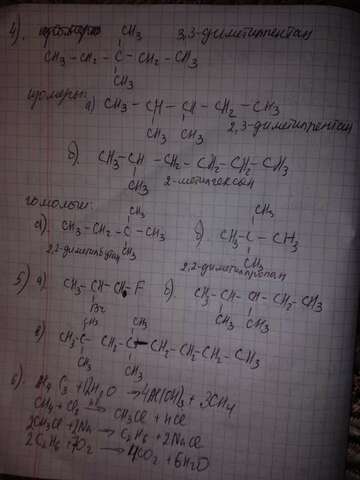 4). CH3 3,3-диметилпентан
CH3 - CH2 - C - CH2 - CH3
CH3
изомеры:
а) CH3 - CH - CH - CH2 - CH3
CH3 CH3 2,3-диметилпентан
б) CH3 - CH - CH2 - CH2 - CH2 - CH3
CH3 2-метилгексан
гомологи:
а). CH3 - CH2 - C - CH3
CH3
CH3
2,2-диметилбутан
б) CH3 - C - CH3
CH3
CH3
2,2-диметилпропан
5) а) CH3 - CH - CH2 - F
Br
б) CH3 - CH - CH - CH2 - CH3
CH3 CH3
в) CH3 CH3
CH3 - C - CH2 - C - CH2 - CH2 - CH2 - CH3
CH3 CH3
6) Al4C3 + 12H2O → 4Al(OH)3 + 3CH4
CH4 + Cl2 → CH3Cl + HCl
2CH3Cl + 2Na → C2H6 + 2NaCl
2C2H6 + 7O2 → 4CO2 + 6H2O